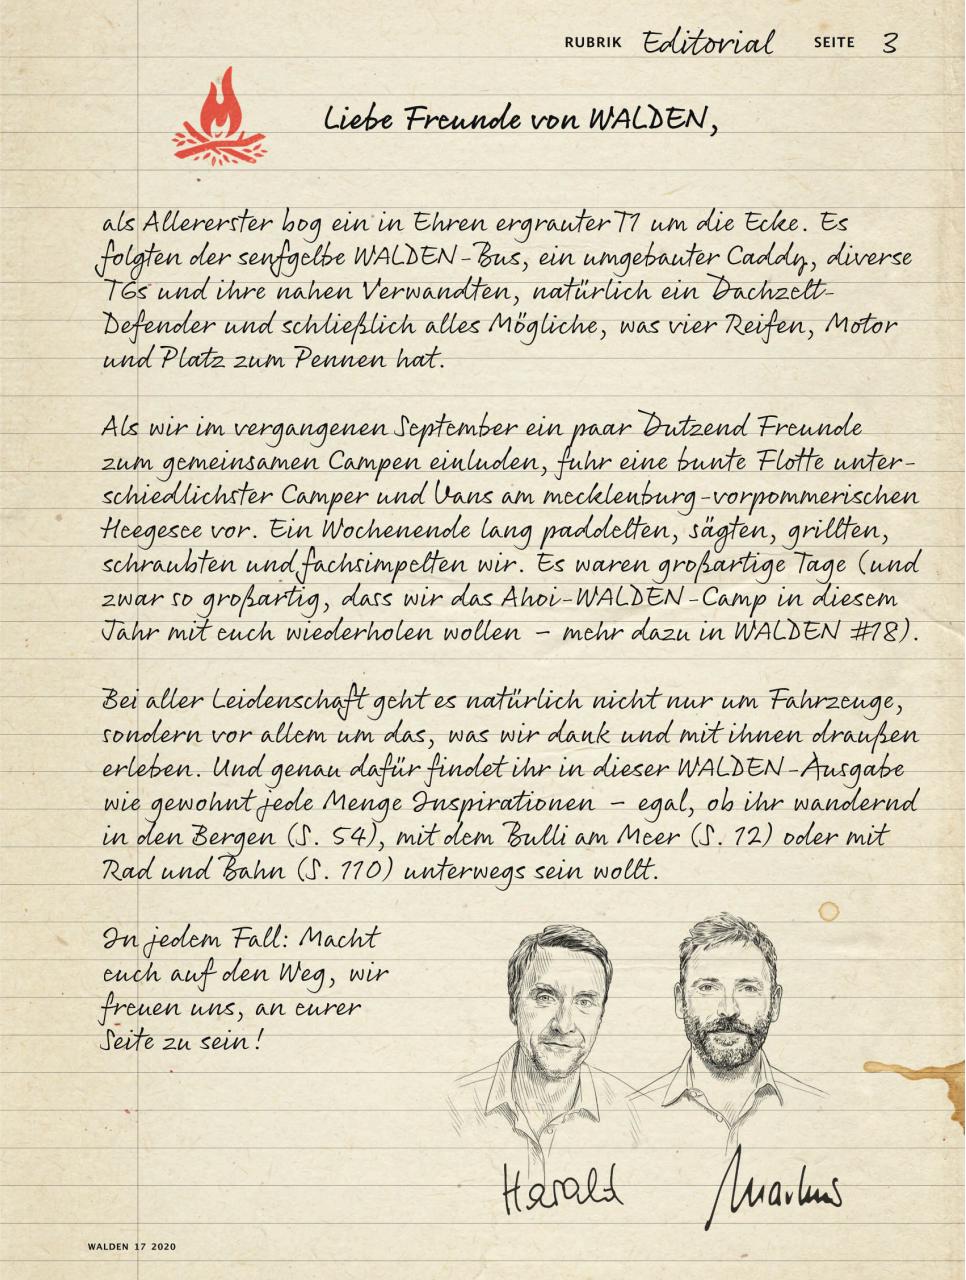 RUBRIK Editorial SEITE 3
Liebe Freunde von WALDEN,
als Allererster bog ein in Ehren ergrauter T1 um die Ecke. Es
folgten der senfgelbe WALDEN-Bus, ein umgebauter Caddy, diverse
T6s und ihre nahen Verwandten, natürlich ein Dachzelt-
Defender und schließlich alles Mögliche, was vier Reifen, Motor
und Platz zum Pennen hat.
Als wir im vergangenen September ein paar Dutzend Freunde
zum gemeinsamen Campen einluden, fuhr eine bunte Flotte unter-
schiedlichster Camper und Vans am mecklenburg-vorpommerischen
Heegesee vor. Ein Wochenende lang paddelten, sägten, grillten,
schraubten und fachsimpelten wir. Es waren großartige Tage (und
zwar so großartig, dass wir das Ahoi-WALDEN-Camp in diesem
Jahr mit euch wiederholen wollen – mehr dazu in WALDEN #18).
Bei aller Leidenschaft geht es natürlich nicht nur um Fahrzeuge,
sondern vor allem um das, was wir dank und mit ihnen draußen
erleben. Und genau dafür findet ihr in dieser WALDEN-Ausgabe
wie gewohnt jede Menge Inspirationen – egal, ob ihr wandernd
in den Bergen (S. 54), mit dem Bulli am Meer (S. 12) oder mit
Rad und Bahn (S. 110) unterwegs sein wollt.
In jedem Fall: Macht
euch auf den Weg, wir
freuen uns, an eurer
Seite zu sein!
Harald
Markus
WALDEN 17 2020